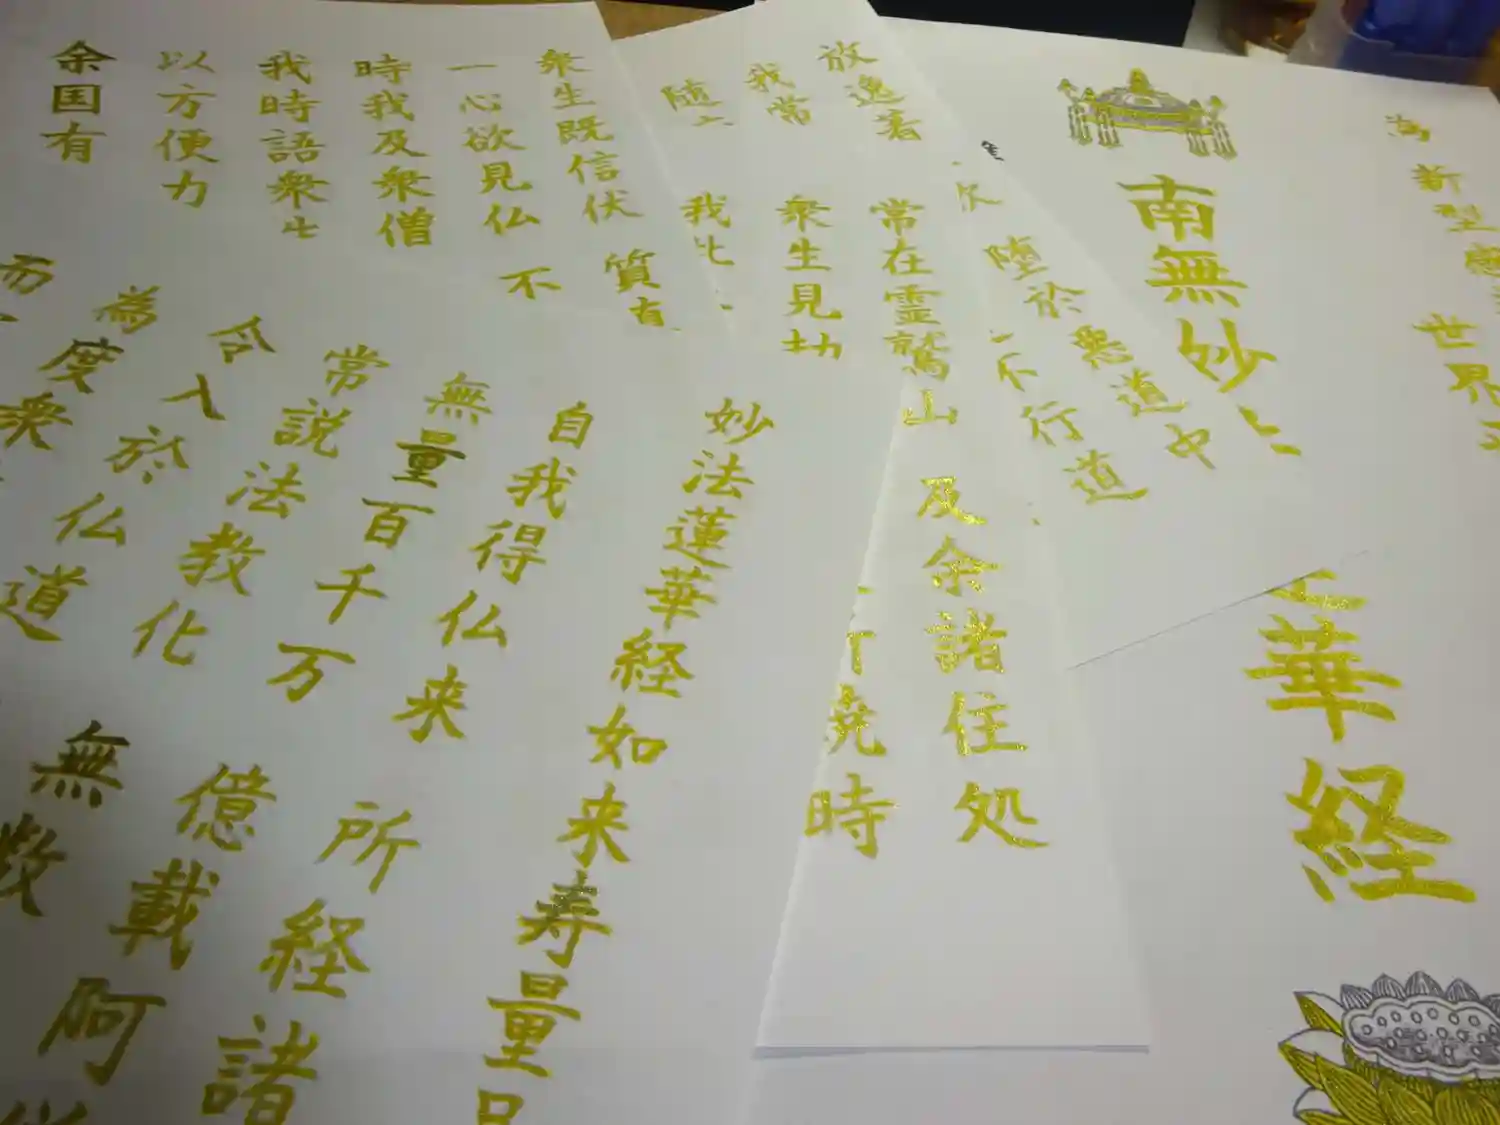 新型感
世界
南無妙
華経
堕於悪道中
不行道
放逸著
我常
随
常在霊鷲山 及余諸住処
衆生見劫
焼時
我此
衆生既信伏 質直
一心欲見仏 不
時我及衆僧
我時語衆生
以方便力
余国有
妙法蓮華経如来寿量品
自我得仏来 所経諸
無量百千万 億載阿
常説法教化 無数
令入於仏道
為度衆
而